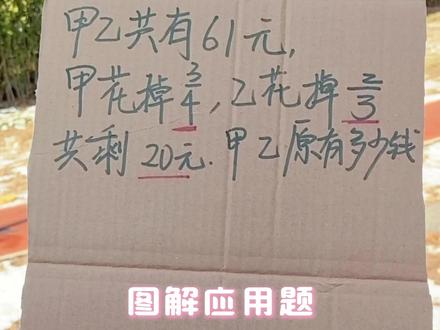 甲乙共有61元,
甲花掉3/4,乙花掉2/3
共剩20元.甲乙原有多少钱
图解应用题